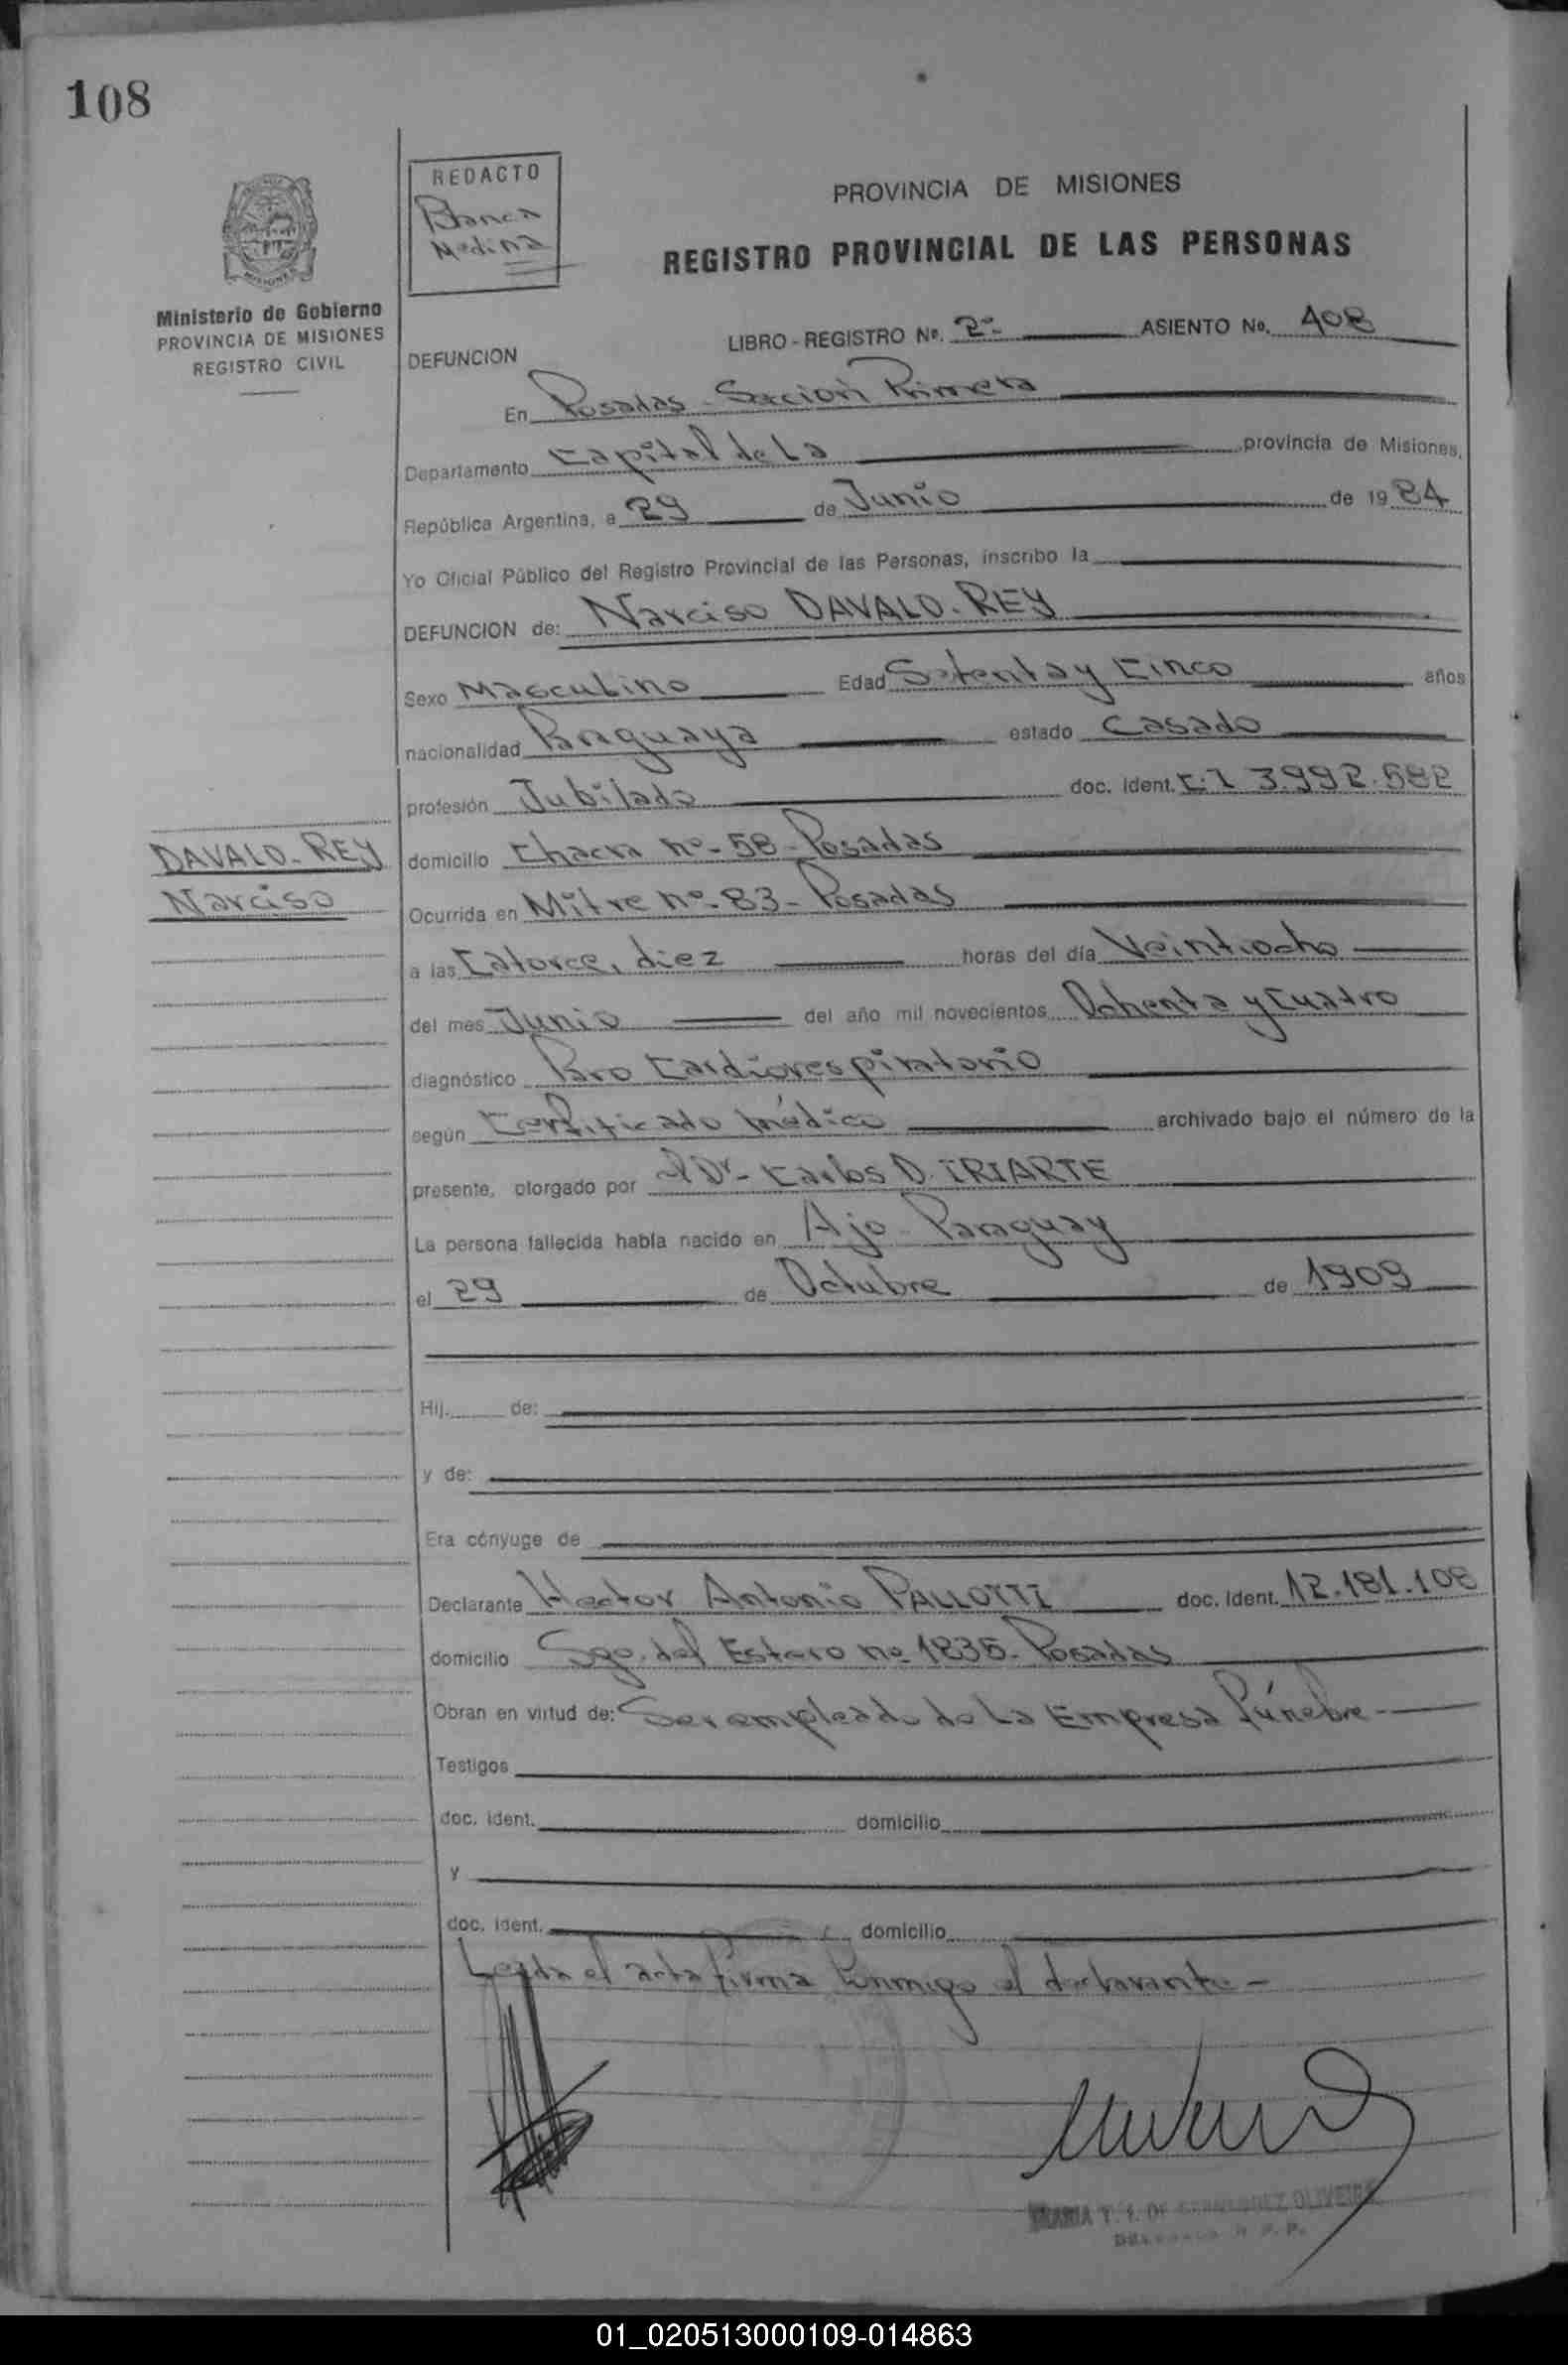 108
REDACTO
Blanca
Medina
PROVINCIA DE MISIONES
REGISTRO PROVINCIAL DE LAS PERSONAS
Ministerio de Gobierno
PROVINCIA DE MISIONES
REGISTRO CIVIL
LIBRO - REGISTRO Nº. 2º- ASIENTO Nº. 408
DEFUNCION
En Posadas - Sección Primera
Departamento Capital de La provincia de Misiones,
República Argentina, a 29 de Junio de 1984
Yo Oficial Público del Registro Provincial de las Personas, inscribo la
DEFUNCION de: Narciso DAVALO-REY
Sexo Masculino Edad Setenta y Cinco años
nacionalidad Paraguaya estado Casado
profesión Jubilado doc. ident. C.I 3.992.582
DAVALO-REY
Narciso
domicilio Chacra nº-58-Posadas
Ocurrida en Mitre nº-83-Posadas
a las Catorce, diez horas del día Veintiocho
del mes Junio del año mil novecientos Ochenta y Cuatro
diagnóstico Paro Cardiorespiratorio
según Certificado médico archivado bajo el número de la
presente, otorgado por el Dr- Carlos D. IRIARTE
La persona fallecida había nacido en Ajo-Paraguay
el 29 de Octubre de 1909
Hij. de:
y de:
Era cónyuge de
Declarante Hector Antonio PALLOTTI doc. ident. 12.181.108
domicilio Sgo. del Estero nº 1835-Posadas
Obran en virtud de: Ser empleado de La Empresa Fúnebre-
Testigos
doc. ident. domicilio
y
doc. ident. domicilio
Leida el acta firma Conmigo el declarante-
MARIA T. I. DE OLIVEIRA
01_020513000109-014863